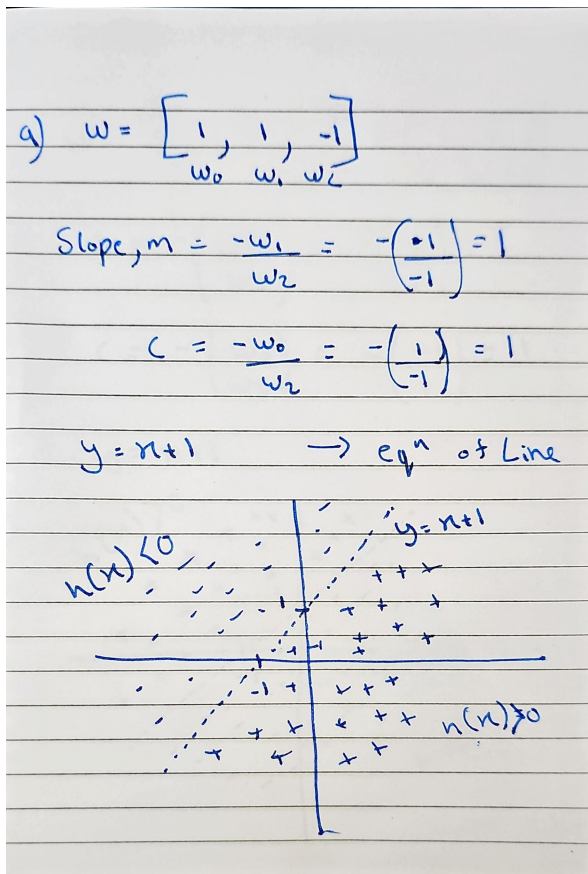 a) w = [1, 1, -1]
w0 w1 w2
Slope, m = -w1/w2 = -(1/-1) = 1
C = -w0/w2 = -(1/-1) = 1
y = x+1 → eqn of Line
y = x+1
h(x) < 0
1
-1
-1
h(x) ≥ 0